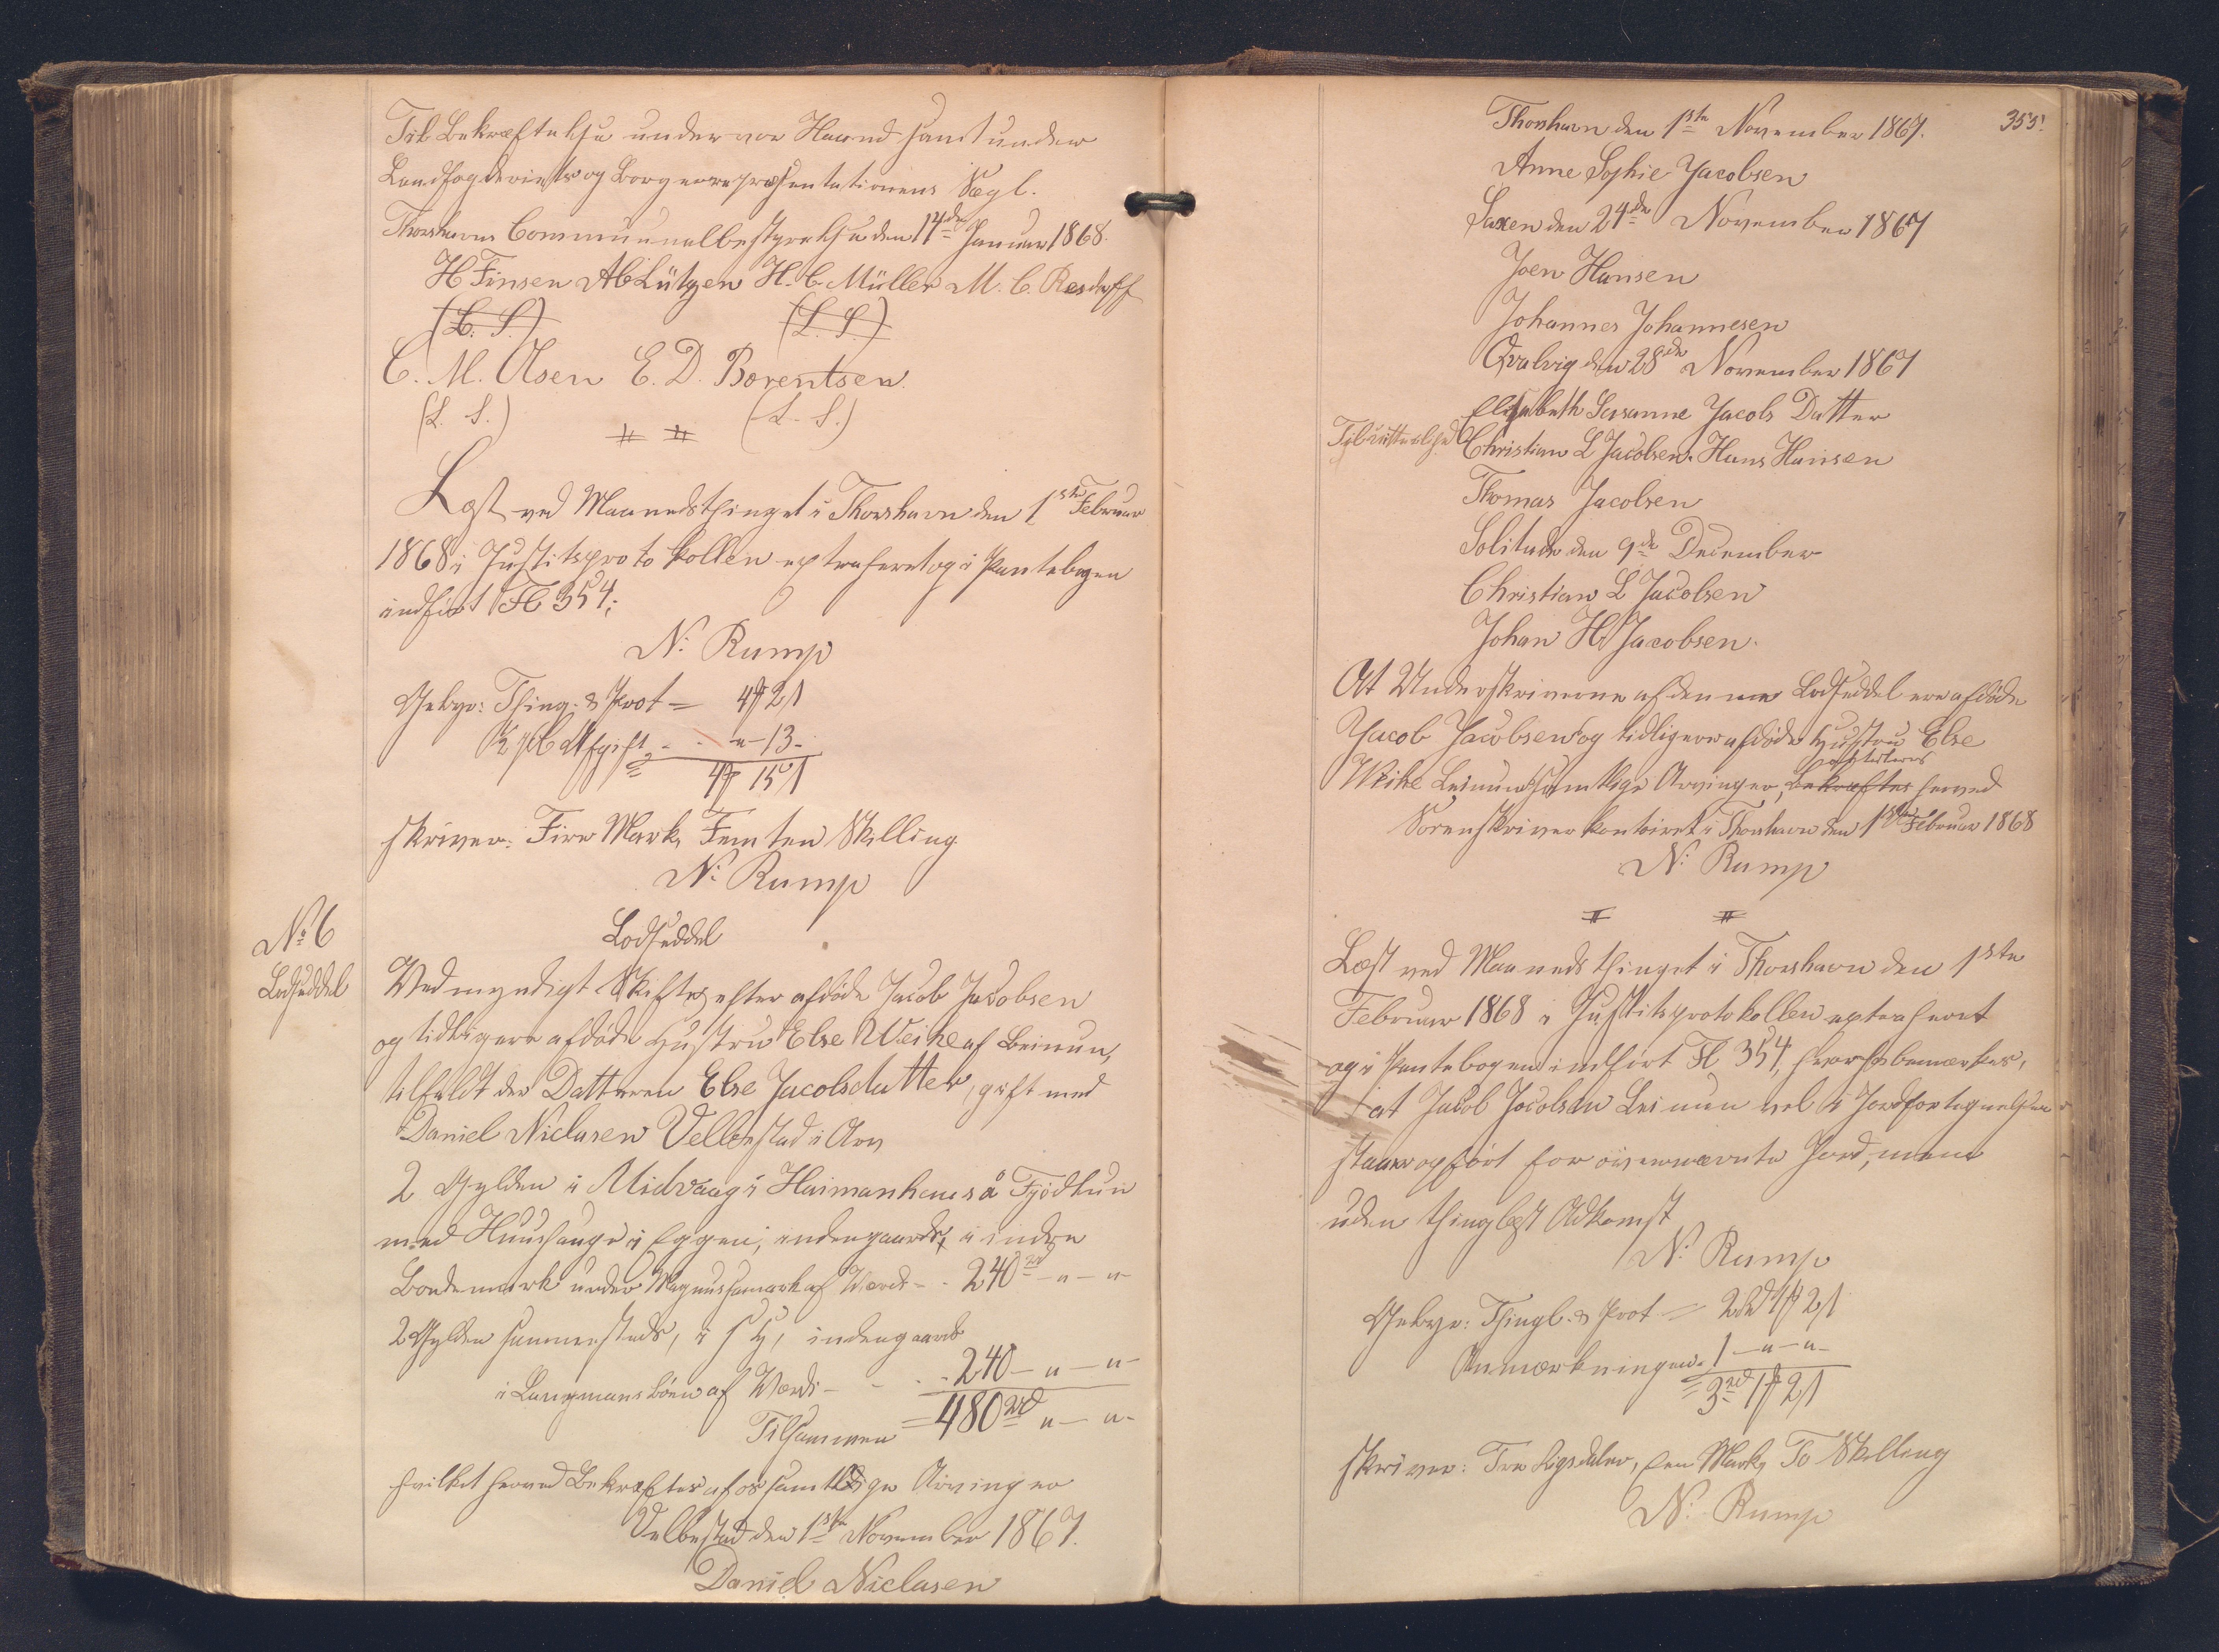 Til Bekræftelse under vor Haand samt under
Landfogderiets og Borgerrepræsentationens Segl.
Thorshavns Communalbestyrelse den 14de Januar 1868.
H Finsen AC Lützen H. C. Müller M. C. Restorff
(L. S.) (L. S.)
C. M. Olsen E. D. Borentsen
(L. S.) (L. S.)
Læst ved Maanedsthinget i Thorshavn den 1ste Februar
1868 i Justitsprotokollen extraheret og i Pantebogen
indført Fl 354;
N: Rump
Gebyr: Thing: & Prot = 4 # 2 s
½ pCt Afgift - - " - 13 -
4 # 15 s
skriver: Fire Mark, Femten Skilling
N: Rump
No 6
Lodseddel
Lodseddel
Ved myndigt Skifte efter afdøde Jacob Jacobsen
og tidligere afdøde Hustru Else Weihe af Leinum,
tilfaldt der Datteren Else Jacobsdatter, gift med
Daniel Niclasen Velbestad i Arv
2 Gylden i Midvaag i Haimanhaus å Fjødlun
med Huushauge i Eggen; indengaards, i indre
Bondemark under af Værdi - - 240 rd - " - "
2 Gylden sammesteds, i indengaards
i Langmans Bøen af Værdi - - - 240 - " - " -
Tilsammen = 480 rd " - " -
hvilket herved Bekræftes af os samtlige Arvinger
Velbestad den 1ste November 1867.
Daniel Niclasen
355.
Thorshavn den 1ste November 1867.
Anne Sophie Jacobsen
Saxen den 24de November 1867
Joen Hansen
Johannes Johannesen
Qvalvig den 28de November 1867
Elisabeth Susanne Jacobs Datter
Til vitterlighed Christian L Jacobsen. Hans Hansen
Thomas Jacobsen
Solitude den 9de December
Christian L Jacobsen
Johan H. Jacobsen.
At Underskriverne af denne Lodseddel ere afdøde
Jacob Jacobsens og tidligere afdøde Hustru Else
Weihe Leinum samtlige Arvinger, bekræftes herved
attesteres
Sorenskriverkontoiret i Thorshavn den 1ste Februar 1868
N: Rump
Læst ved Maanedsthinget i Thorshavn den 1ste
Februar 1868 i Justitsprotokollen extraheret
og i Pantebogen indført Fl. 354, hvorhos bemærkes,
at Jacob Jacobsen Leinum vel i Jordfortegnelsen
staaer opført for ovennævnte Jord, men
uden thinglæst Adkomst
N: Rump
Gebyr: Thingl. & Prot = 2 rd 1 # 2 s
Anmærkningen - 1 - " - " -
= 3 rd 1 # 2 s
skriver: Tre Rigsdaler, een Mark, To Skilling
N: Rump